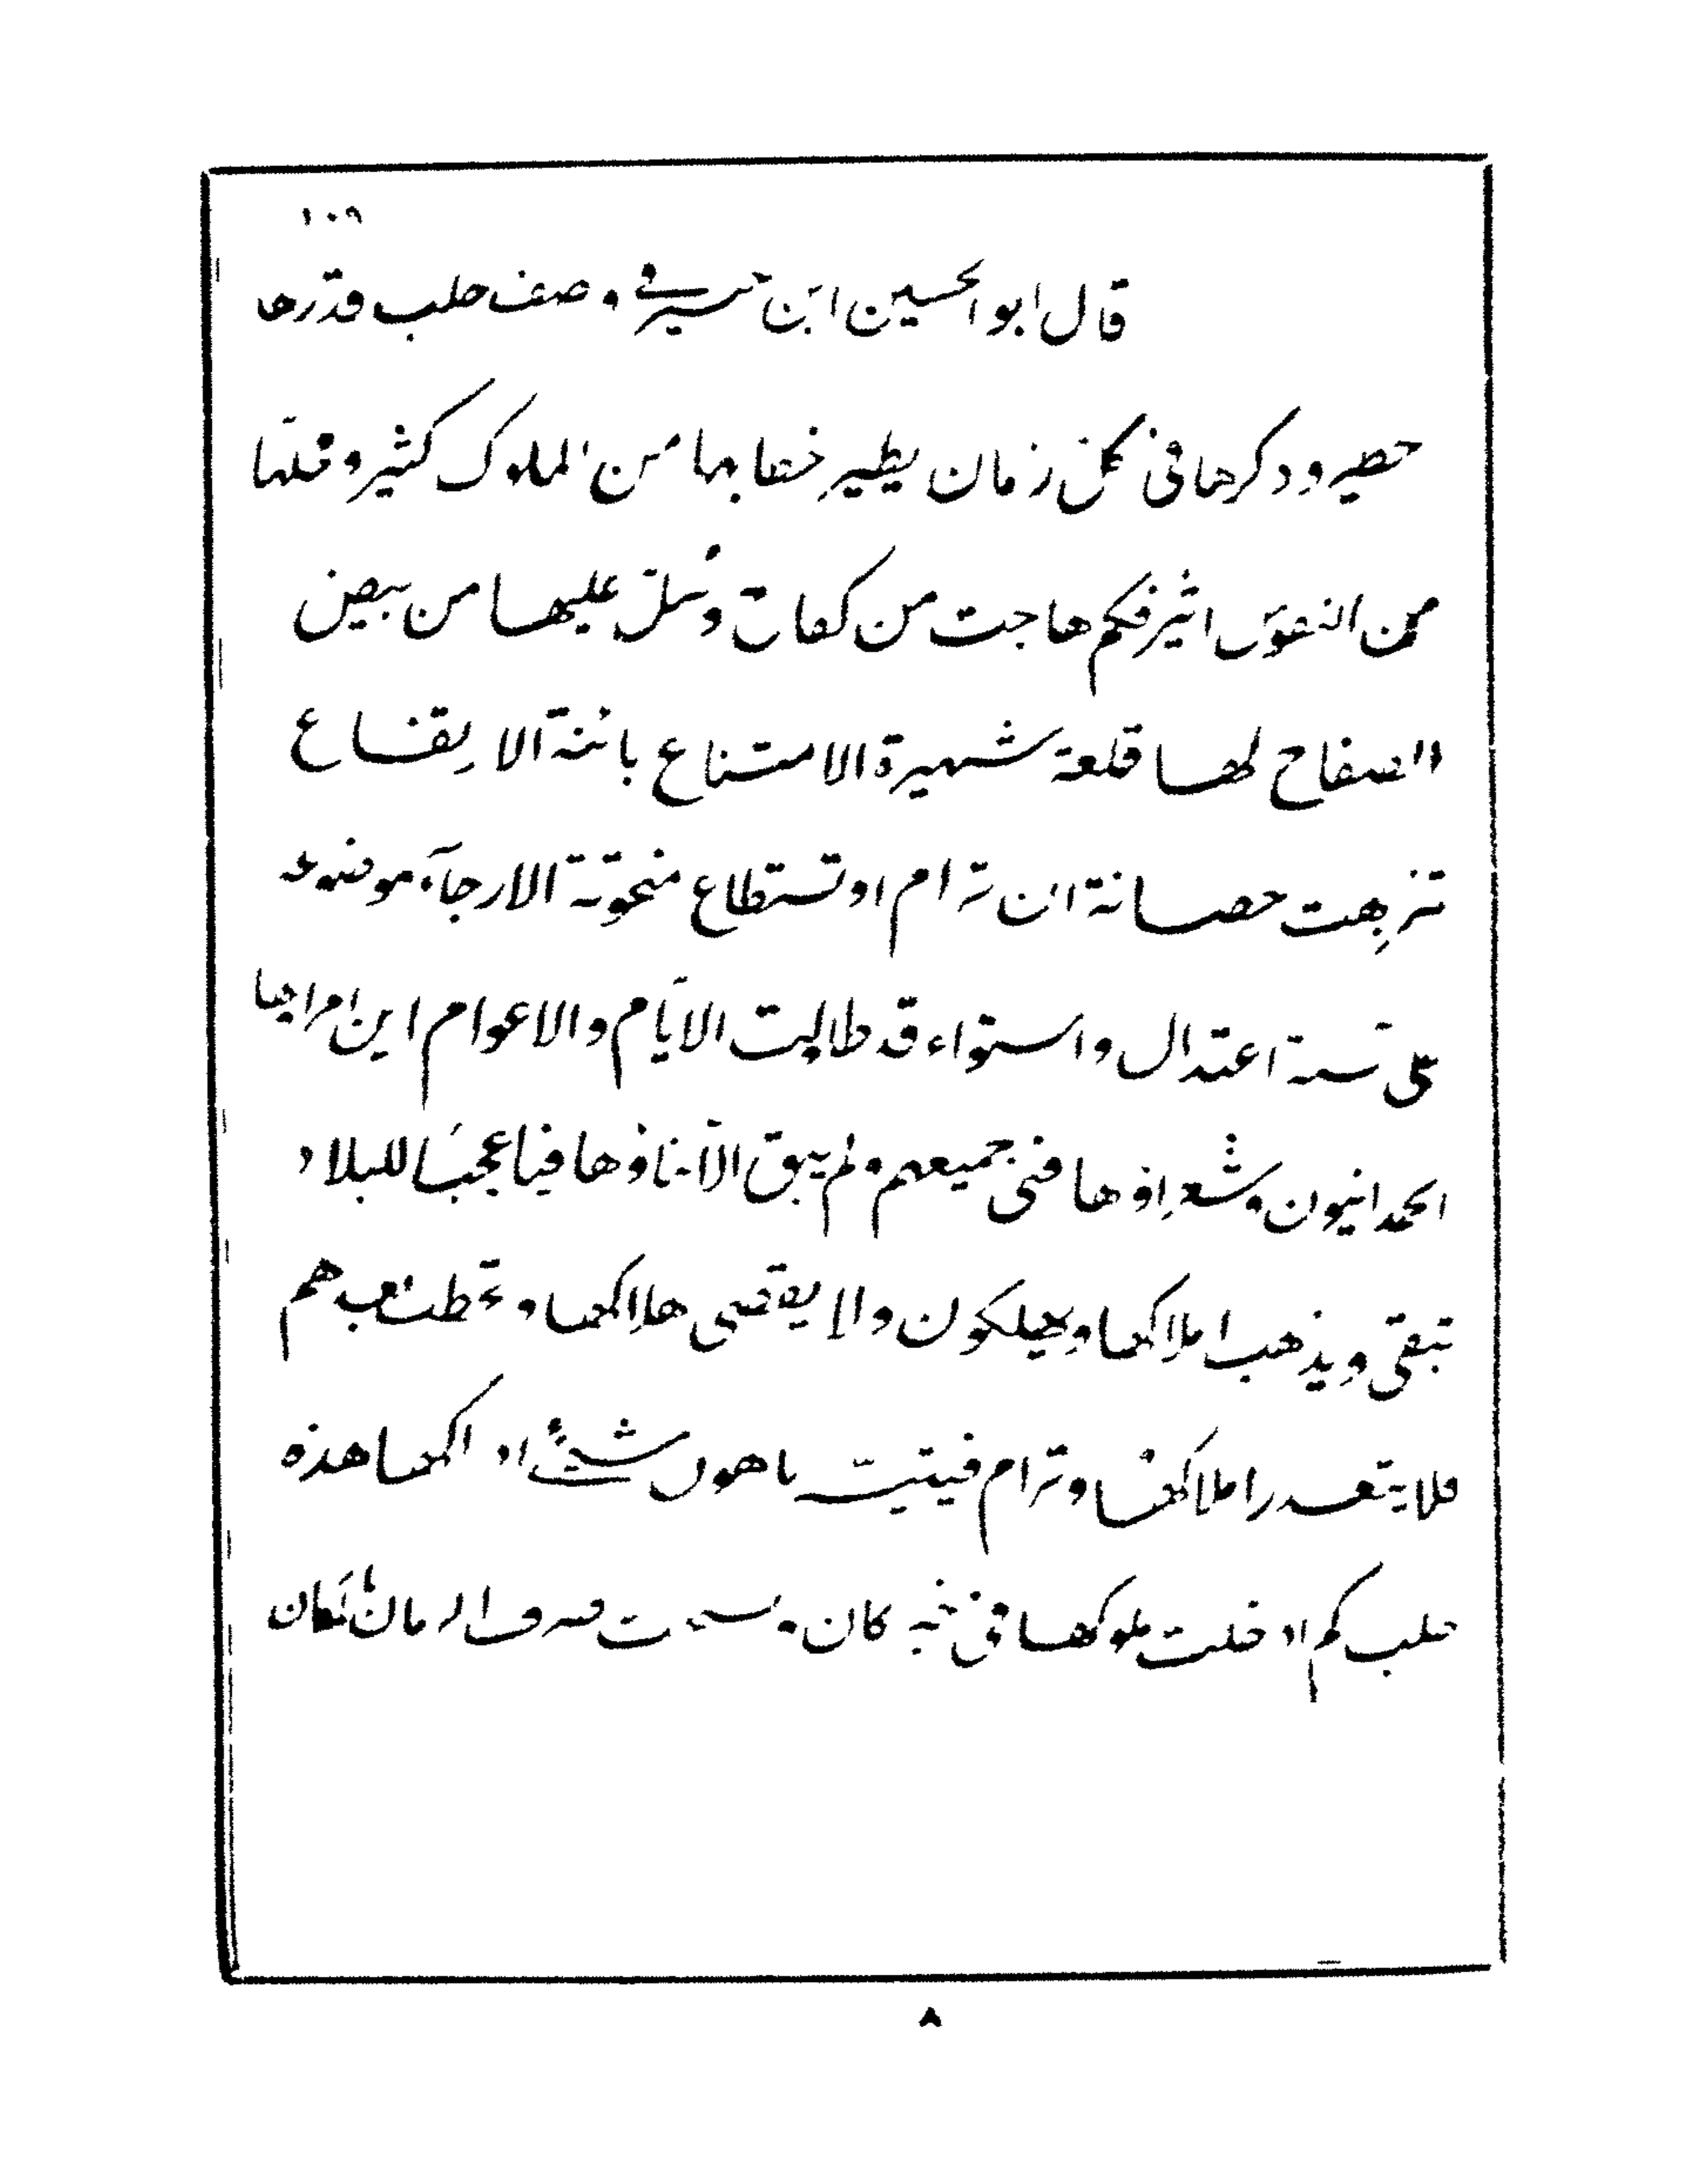 ١٠٩
قال ابو الحسين ابن جبير فى وصف حلب قدرها
خطير وذكرها فى كل زمان يطير خطابها من الملوك كثير ومحلها
من النفوس اثير فكم هاجت من كفاح وسل عليها من بيض
الصفاح لها قلعة شهيرة الامتناع بائنة الارتفاع
تنزهت حصانة ان ترام او تستطاع منحوتة الارجآء موضوعة
على نسبة اعتدال واستواء قد طالبت الايام والاعوام اين امراءها
الحمدانيون وشعراؤها فنى جميعهم ولم يبق الا بناؤها فيا عجبا للبلاد
تبقى ويذهب املاكها ويهلكون ولا يقضى هلاكها وتخطب بعدهم
فلا يتعذر املاكها وترام فيتيسر باهون شئ ادراكها هذه
حلب كم ادخلت ملوكها فى خبر كان ونسخت صرف الزمان بالمكان
٨